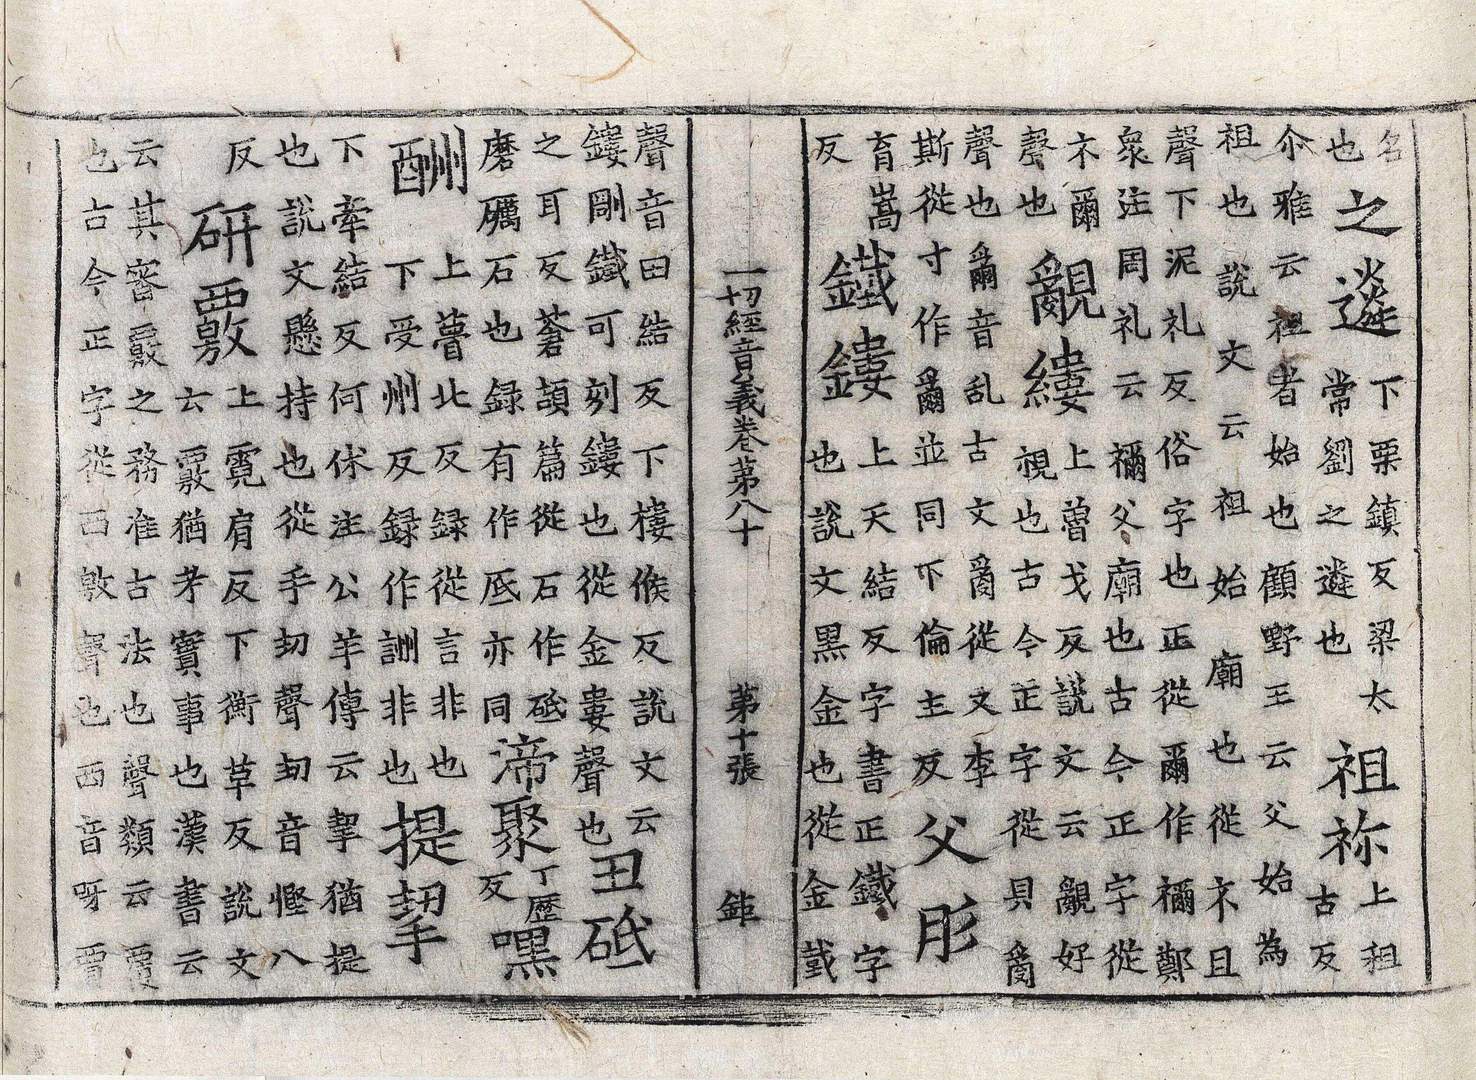 名也之遴下栗鎮反梁太常劉之遴也祖祢上租古反
尒雅云祖者始也顧野王云父始為
祖也說文云祖始廟也從示且
聲下泥礼反俗字也正從爾作禰鄭
衆注周礼云禰父廟也古今正字從
示爾聲也覶縷上魯戈反說文云覶好視也古今正字從見𤔔
聲也𤔔音乱古文𤔔從文李
斯從寸作𤔔並同下倫主反父肜
育嵩反鐵鏤上天結反字書正鐵字也說文黑金也從金𢧜
一切經音義卷第八十 第十張 鉅
聲音田結反下樓候反說文云
鏤剛鐵可刻鏤也從金婁聲也丑砥
之耳反蒼頡篇從石作砥
磨礪石也録有作厎亦同渧聚丁歷反嘿
酬上瞢北反録從言非也下受州反録作詶非也提挈
下牽結反何休注公羊傳云挈猶提
也說文懸持也從手㓞聲㓞音慳八
反研覈上霓肩反下衡草反說文云覈猶考實事也漢書云
云其審覈之務准古法也聲類云覈
也古今正字從襾敫聲也襾音呀賈